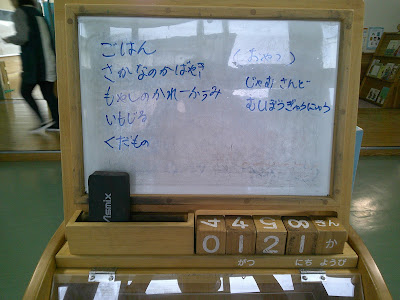 ごはん
さかなのかばやき
もやしのかれーふうみ
いもじる
くだもの
(おやつ)
じゃむさんど
むしぼうぎゅうにゅう
Asmix
4 4 5 8 さん
0 1 2 1 か
がつ にち ようび